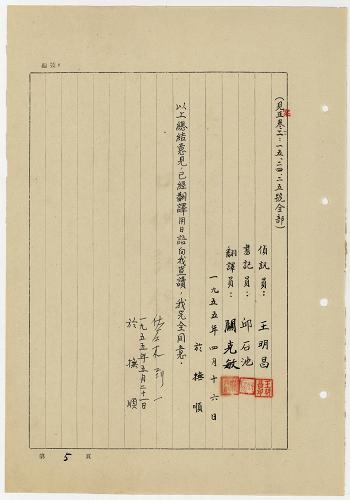 (見正卷三、一五、二四、二五號全部)
偵訊員：王明昌
書記員：邱石池
翻譯員：關克敏
一九五五年四月十六日
於撫順
以上總結意見，已經翻譯用日語向我宣讀，我完全同意。
佐々木到一
一九五五年五月二十一日
於撫順
第 5 頁